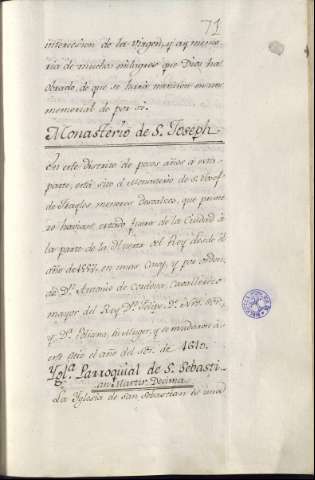 71
intercesion de la Virgen, y ay memo-
ria de muchos milagros que Dios ha
obrado, de que se hará mencion en un
memorial de por sí.
Monasterio de S. Joseph
En este distrito de pocos años á esta
parte, está sito el Monasterio de S. Josef
de Frayles menores Descalzos, que prime
ro havian estado fuera de la Ciudad á
la parte de la Huerta del Rey desde el
año de en unas Casas, y por orden
de Dn. Antonio de Cordova, Cavallerizo
mayor del Rey Dn. Felipe 2º. Ntro. Sor.
y Dª. Juliana, su Muger, y se mudaron á
este sitio el año del Sor. de 1610.
Yglª. Parroquial de S. Sebasti-
an Martir Decima
La Yglesia de san Sebastian es una